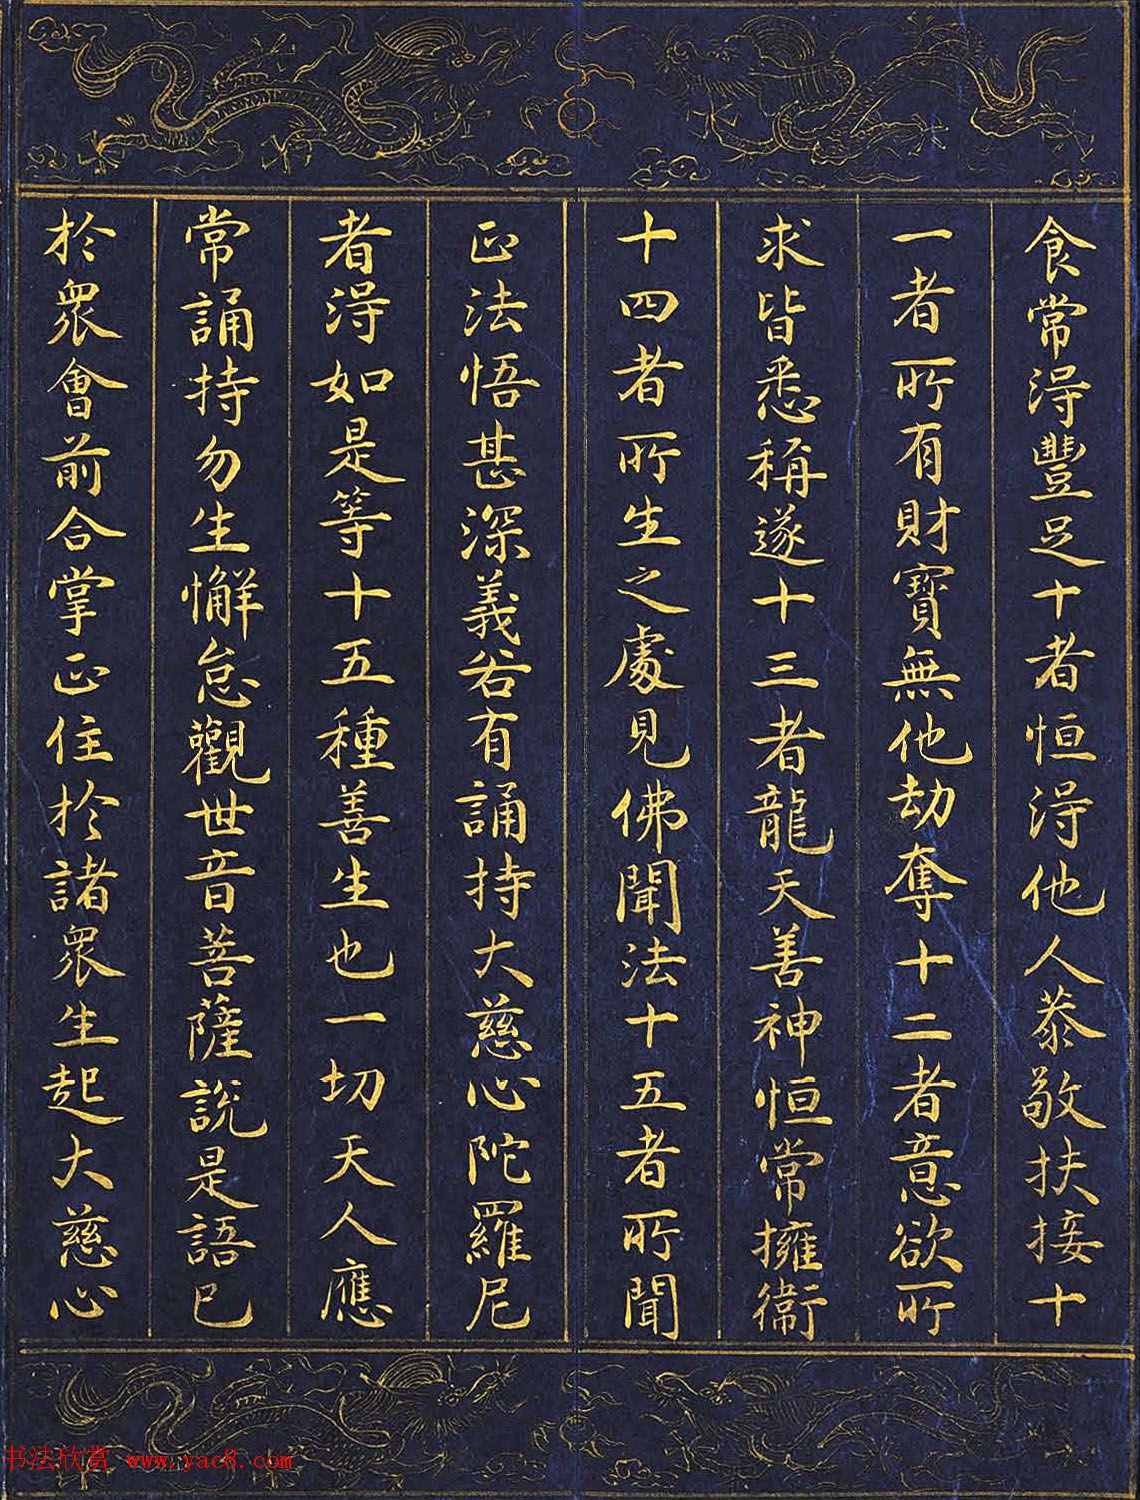 食常得豐足十者恒得他人恭敬扶接十
一者所有財寶無他劫奪十二者意欲所
求皆悉稱遂十三者龍天善神恒常擁衛
十四者所生之處見佛聞法十五者所聞
正法悟甚深義若有誦持大慈心陀羅尼
者得如是等十五種善生也一切天人應
常誦持勿生懈怠觀世音菩薩說是語已
於眾會前合掌正住於諸眾生起大慈心
书法欣赏 www.yac8.com